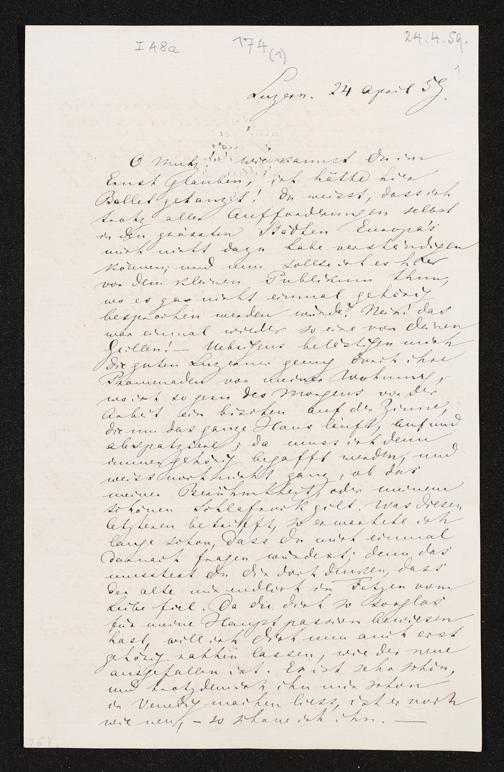 I A 8a
174 (1)
24.4.59.
1
Luzern. 24 April 59.
O Mutz! wie kannst Du im
Ernst glauben, ich hätte hier
Ballet getanzt! Du weisst, dass ich
trotz aller Aufforderungen selbst
in den grössten Städten Europa's
mich nicht dazu habe verständigen
können, und nun sollte ich es hier
vor dem kleinen Publikum thun,
wo es gar nicht einmal gehörig
besprochen werden würde? Nein! das
war einmal wieder so eine von deinen
Grillen! — Uebrigens belästigen mich
die guten Luzerner genug durch ihre
Promenaden vor meiner Wohnung,
wo ich so gern des Morgens vor der
Arbeit ein bischen auf der Zinne,
die um das ganze Haus läuft, auf und
abspatziere; da muss ich denn
immer gehörig begafft werden, und
weiss noch nicht ganz, ob das
meiner Berühmtheit, oder meinem
schönen Schlafrock gilt. Was diesen
letzteren betrifft, so erwartete ich
lange schon, dass Du mich einmal
darnach fragen würdest; denn das
musstest Du Dir doch denken, dass
der alte mir endlich in Fetzen vom
Leibe fiel. Da Du dich so sorglos
für meine Hauptpassion bewiesen
hast, will ich Dich nun auch erst
gehörig zappeln lassen, wie der neue
ausgefallen ist. Er ist sehr schön,
und trotzdem ich ihn mir schon
in Venedig machen liess, ist er noch
wie neu, — so schone ich ihn. —